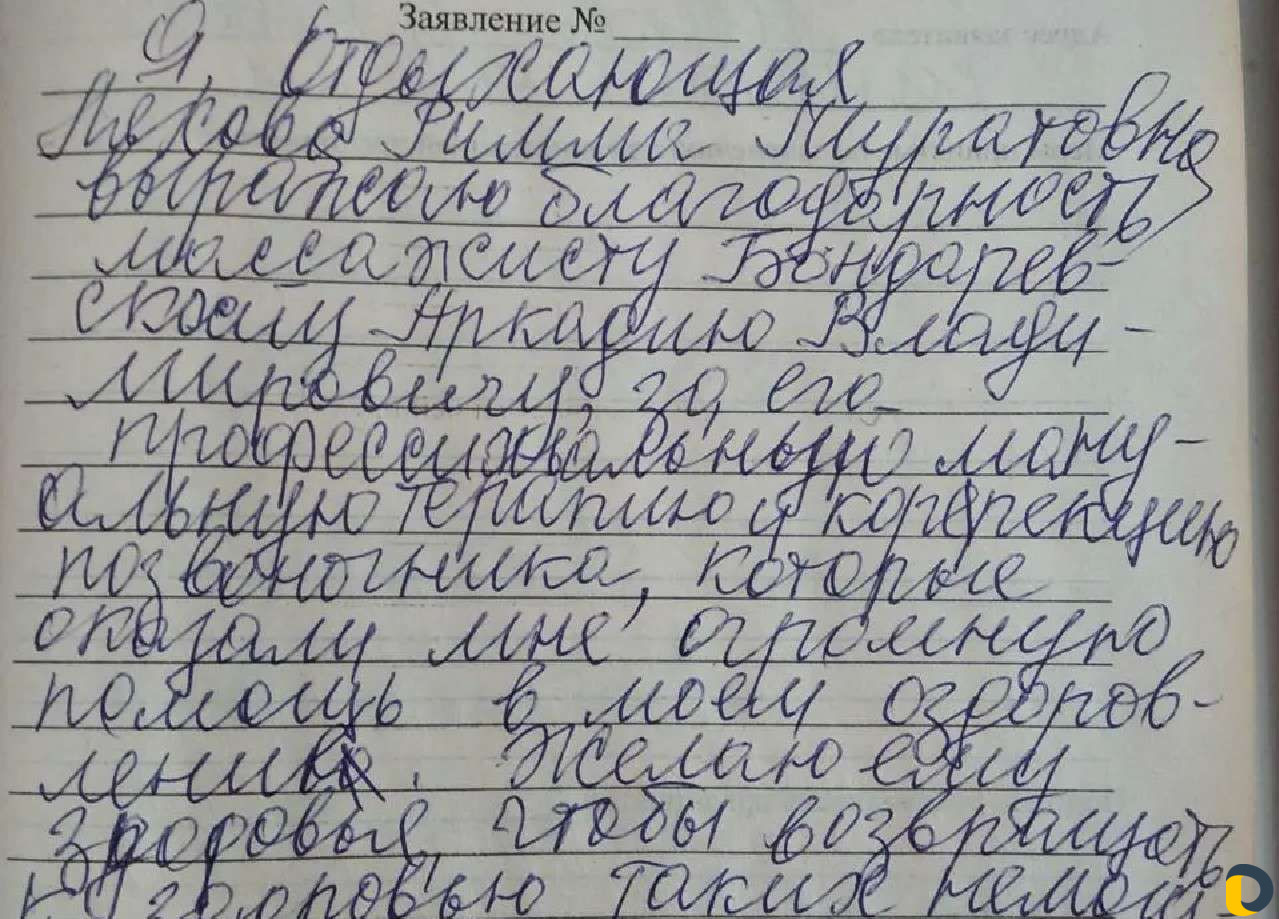 Заявление № ______
Я, отдыхающая
Мяхова Римма Муратовна,
выражаю благодарность
массажисту Бондарев-
скому Аркадию Влади-
мировичу, за его
профессиональную ману-
альную терапию и коррекцию
позвоночника, которые
оказали мне огромную
помощь в моем оздоров-
лении. Желаю ему
здоровья, чтобы возвращать
к здоровью таких